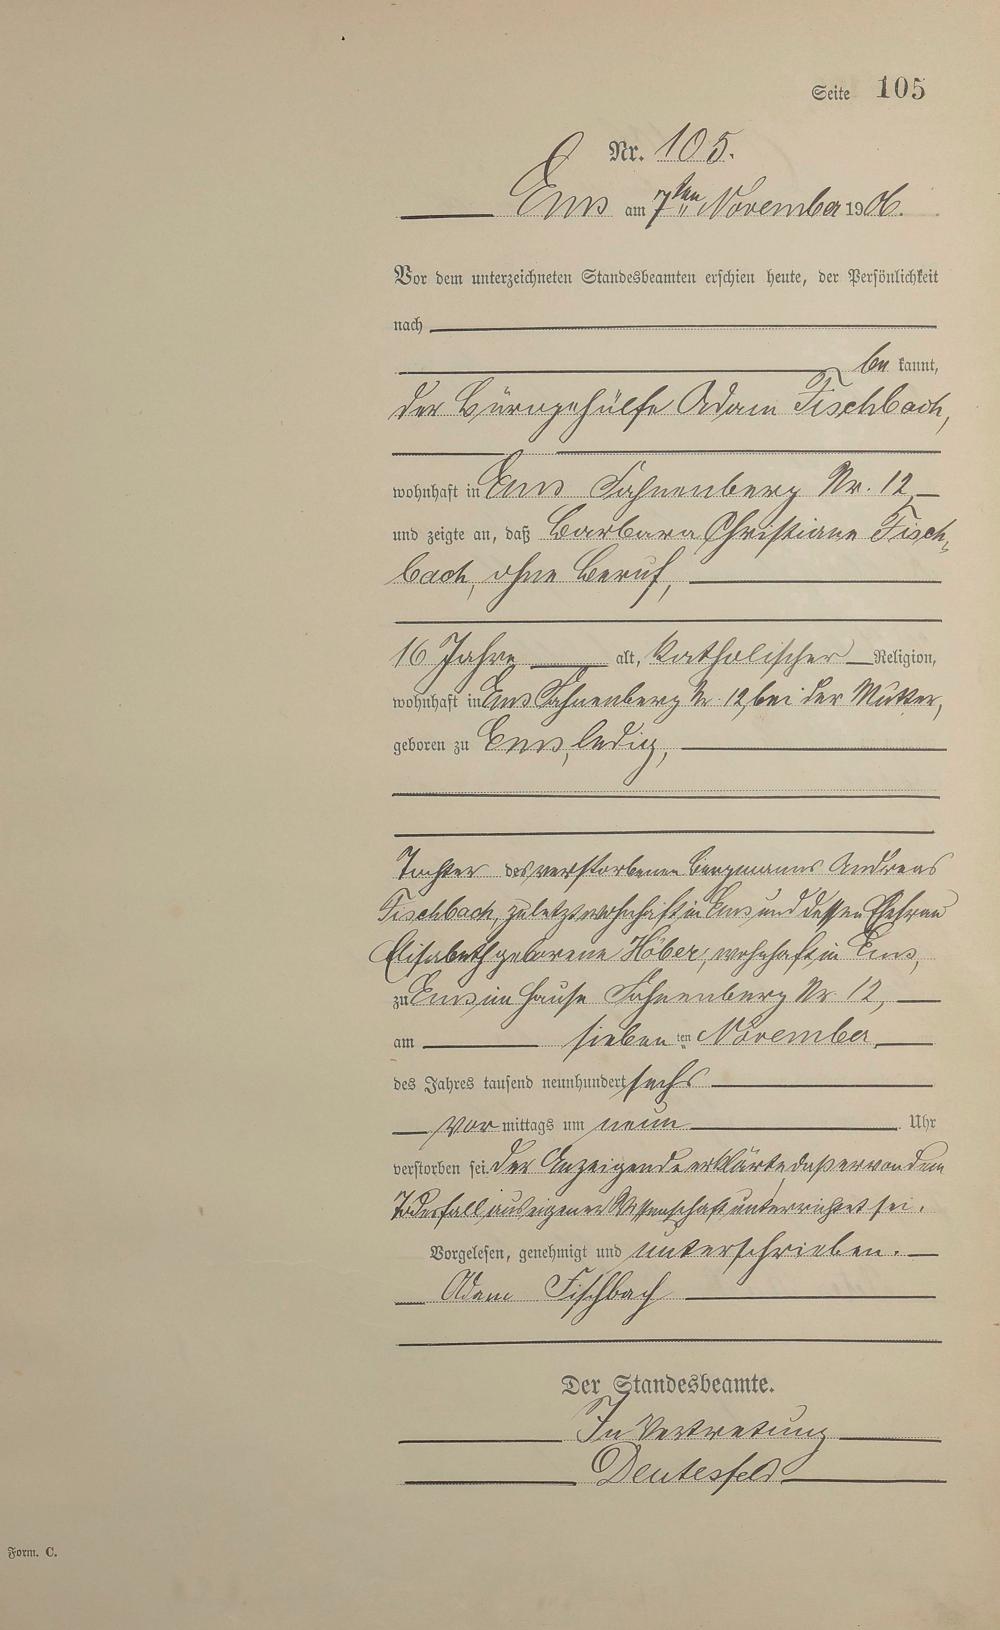 Seite 105
Nr. 105.
Ems am 7ten November 1906.
Vor dem unterzeichneten Standesbeamten erschien heute, der Persönlichkeit
nach
be kannt,
der Bürogehülfe Adam Fischbach,
wohnhaft in Ems Fahnenberg Nr. 12
und zeigte an, daß Barbara Christiane Fisch-
bach, ohne Beruf,
16 Jahre alt, katholischer Religion,
wohnhaft in Ems Fahnenberg Nr 12, bei der Mutter,
geboren zu Ems, ledig,
Tochter des verstorbenen Bergmanns Andreas
Fischbach, zuletzt wohnhaft in Ems und dessen Ehefrau
Elisabeth geborene Höber, wohnhaft in Ems,
zu Ems im Hause Fahnenberg Nr 12,
am sieben ten November
des Jahres tausend neunhundert sechs
Vor mittags um neun Uhr
verstorben sei. Der Anzeigende erklärte, daß er von dem
Todesfall aus eigener Wissenschaft unterrichtet sei.
Vorgelesen, genehmigt und unterschrieben.
Adam Fischbach
Der Standesbeamte.
In Vertretung
Deutesfeld
Form. C.